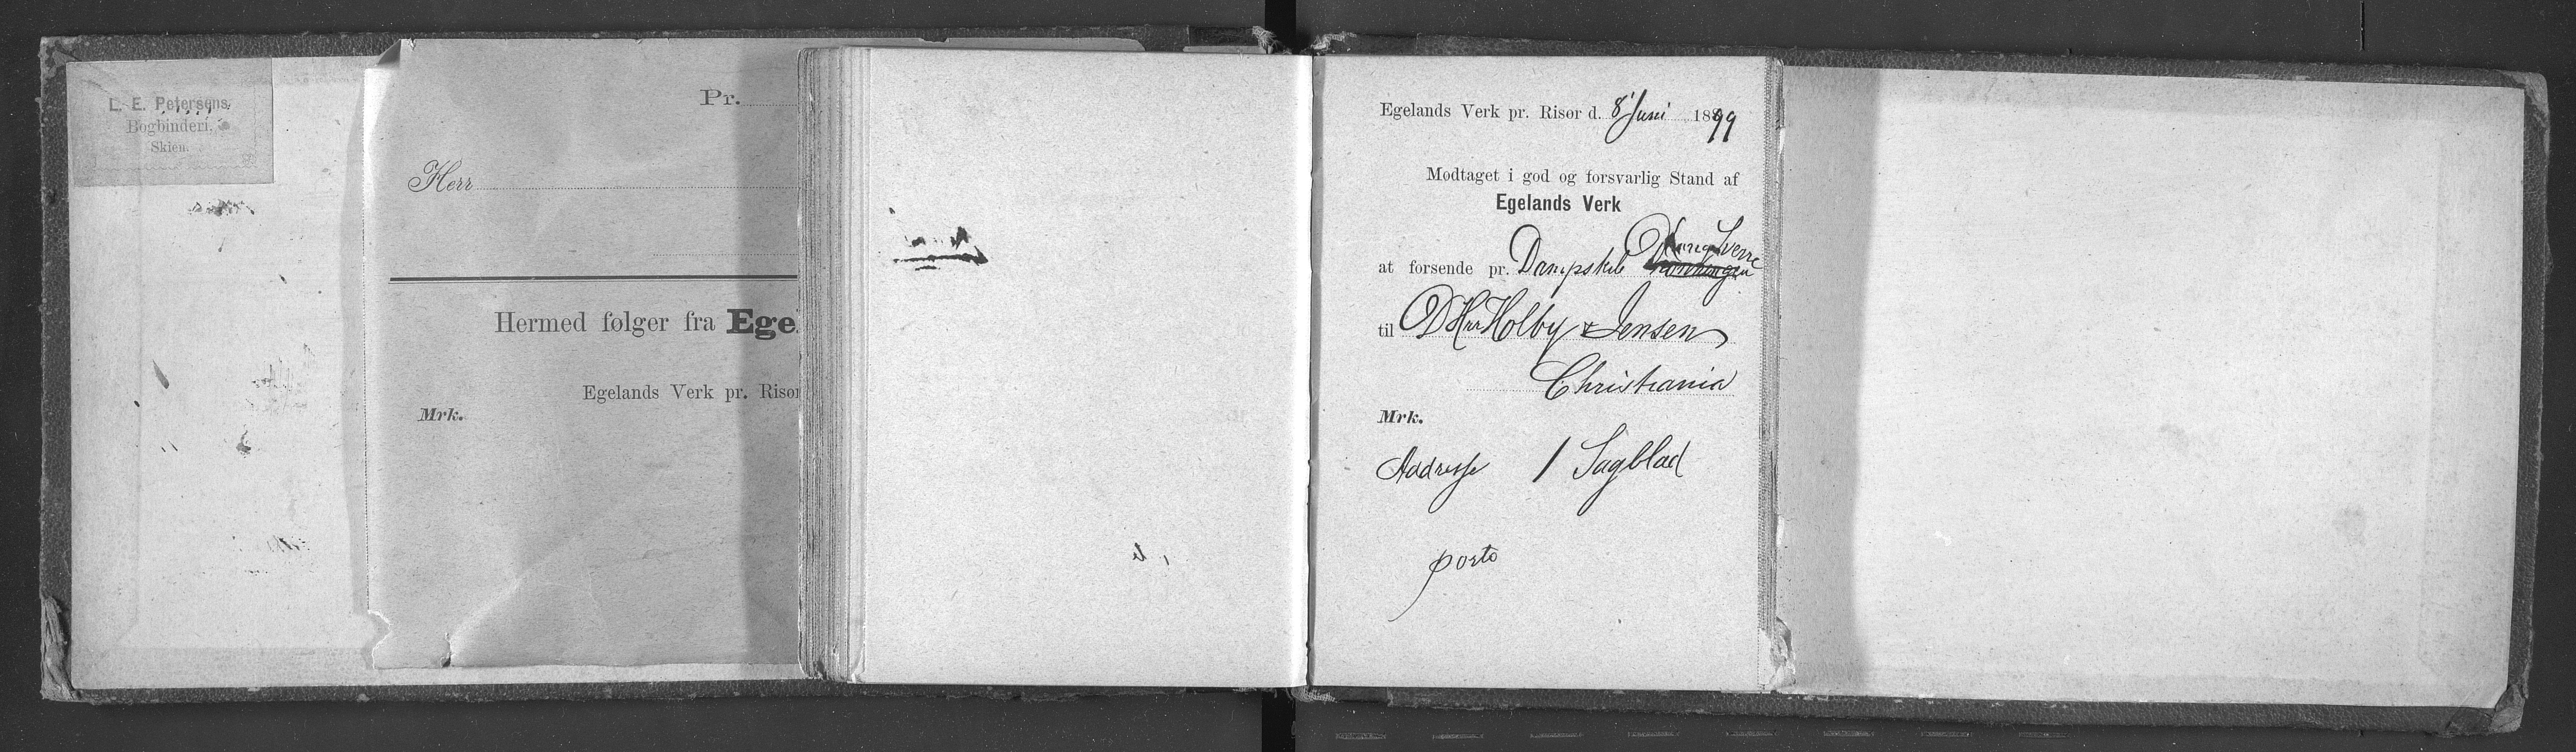 L. E. Petersens
Bogbinderi,
Skien.
Pr.
Herr
Hermed følger fra Ege
Egelands Verk pr. Risør
Mrk.
Egelands Verk pr. Risør d. 8' Juni 1899
Modtaget i god og forsvarlig Stand af
Egelands Verk
Kong Sverre
at forsende pr. Dampskib
til D'Hrr Holby & Jensen
Christiania
Mrk.
Addresse 1 Sagblad
porto